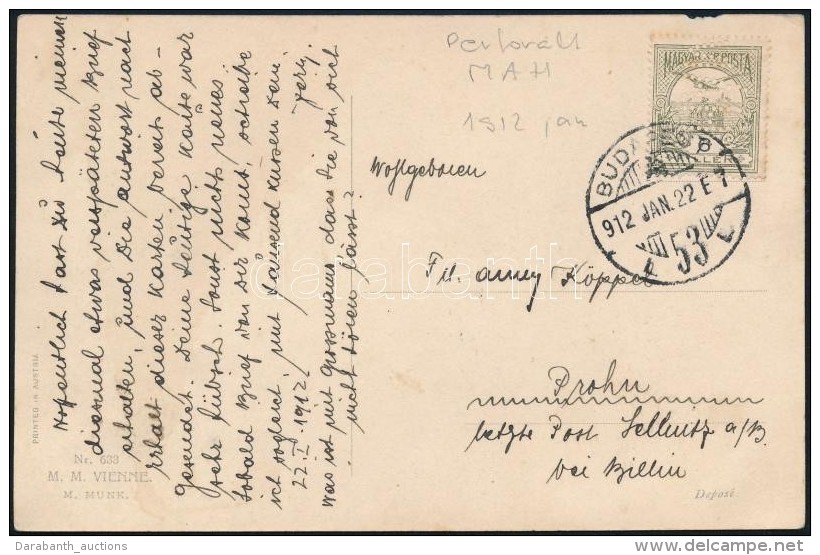 Hoffentlich hast du heute meinen
diesmal etwas verspäteten Brief
erhalten, und die Antwort nach
Erhalt dieser Karten bereits ab-
gesendet. Deine heutige Karte war
sehr hübsch. Sonst nichts neues
sobald Brief von dir kommt, schreibe
ich sogleich, mit tausend Küssen dein
22. I. 1912
was ist mit Grossmama dass die von sich
nicht hören lässt?
Perforált
MAH
1912 jan
MAGYAR KIR. POSTA
BUDAPEST
912 JAN. 22 E 7
VII
53
Wohlgeboren
Frl. Anny Köppel
Prohn
letzte Post Sellnitz a/B.
bei Billin
PRINTED IN AUSTRIA
Nr. 633
M. M. VIENNE.
M. MUNK.
Deposé
darabanth
Darabanth_auctions
www.delcampe.net